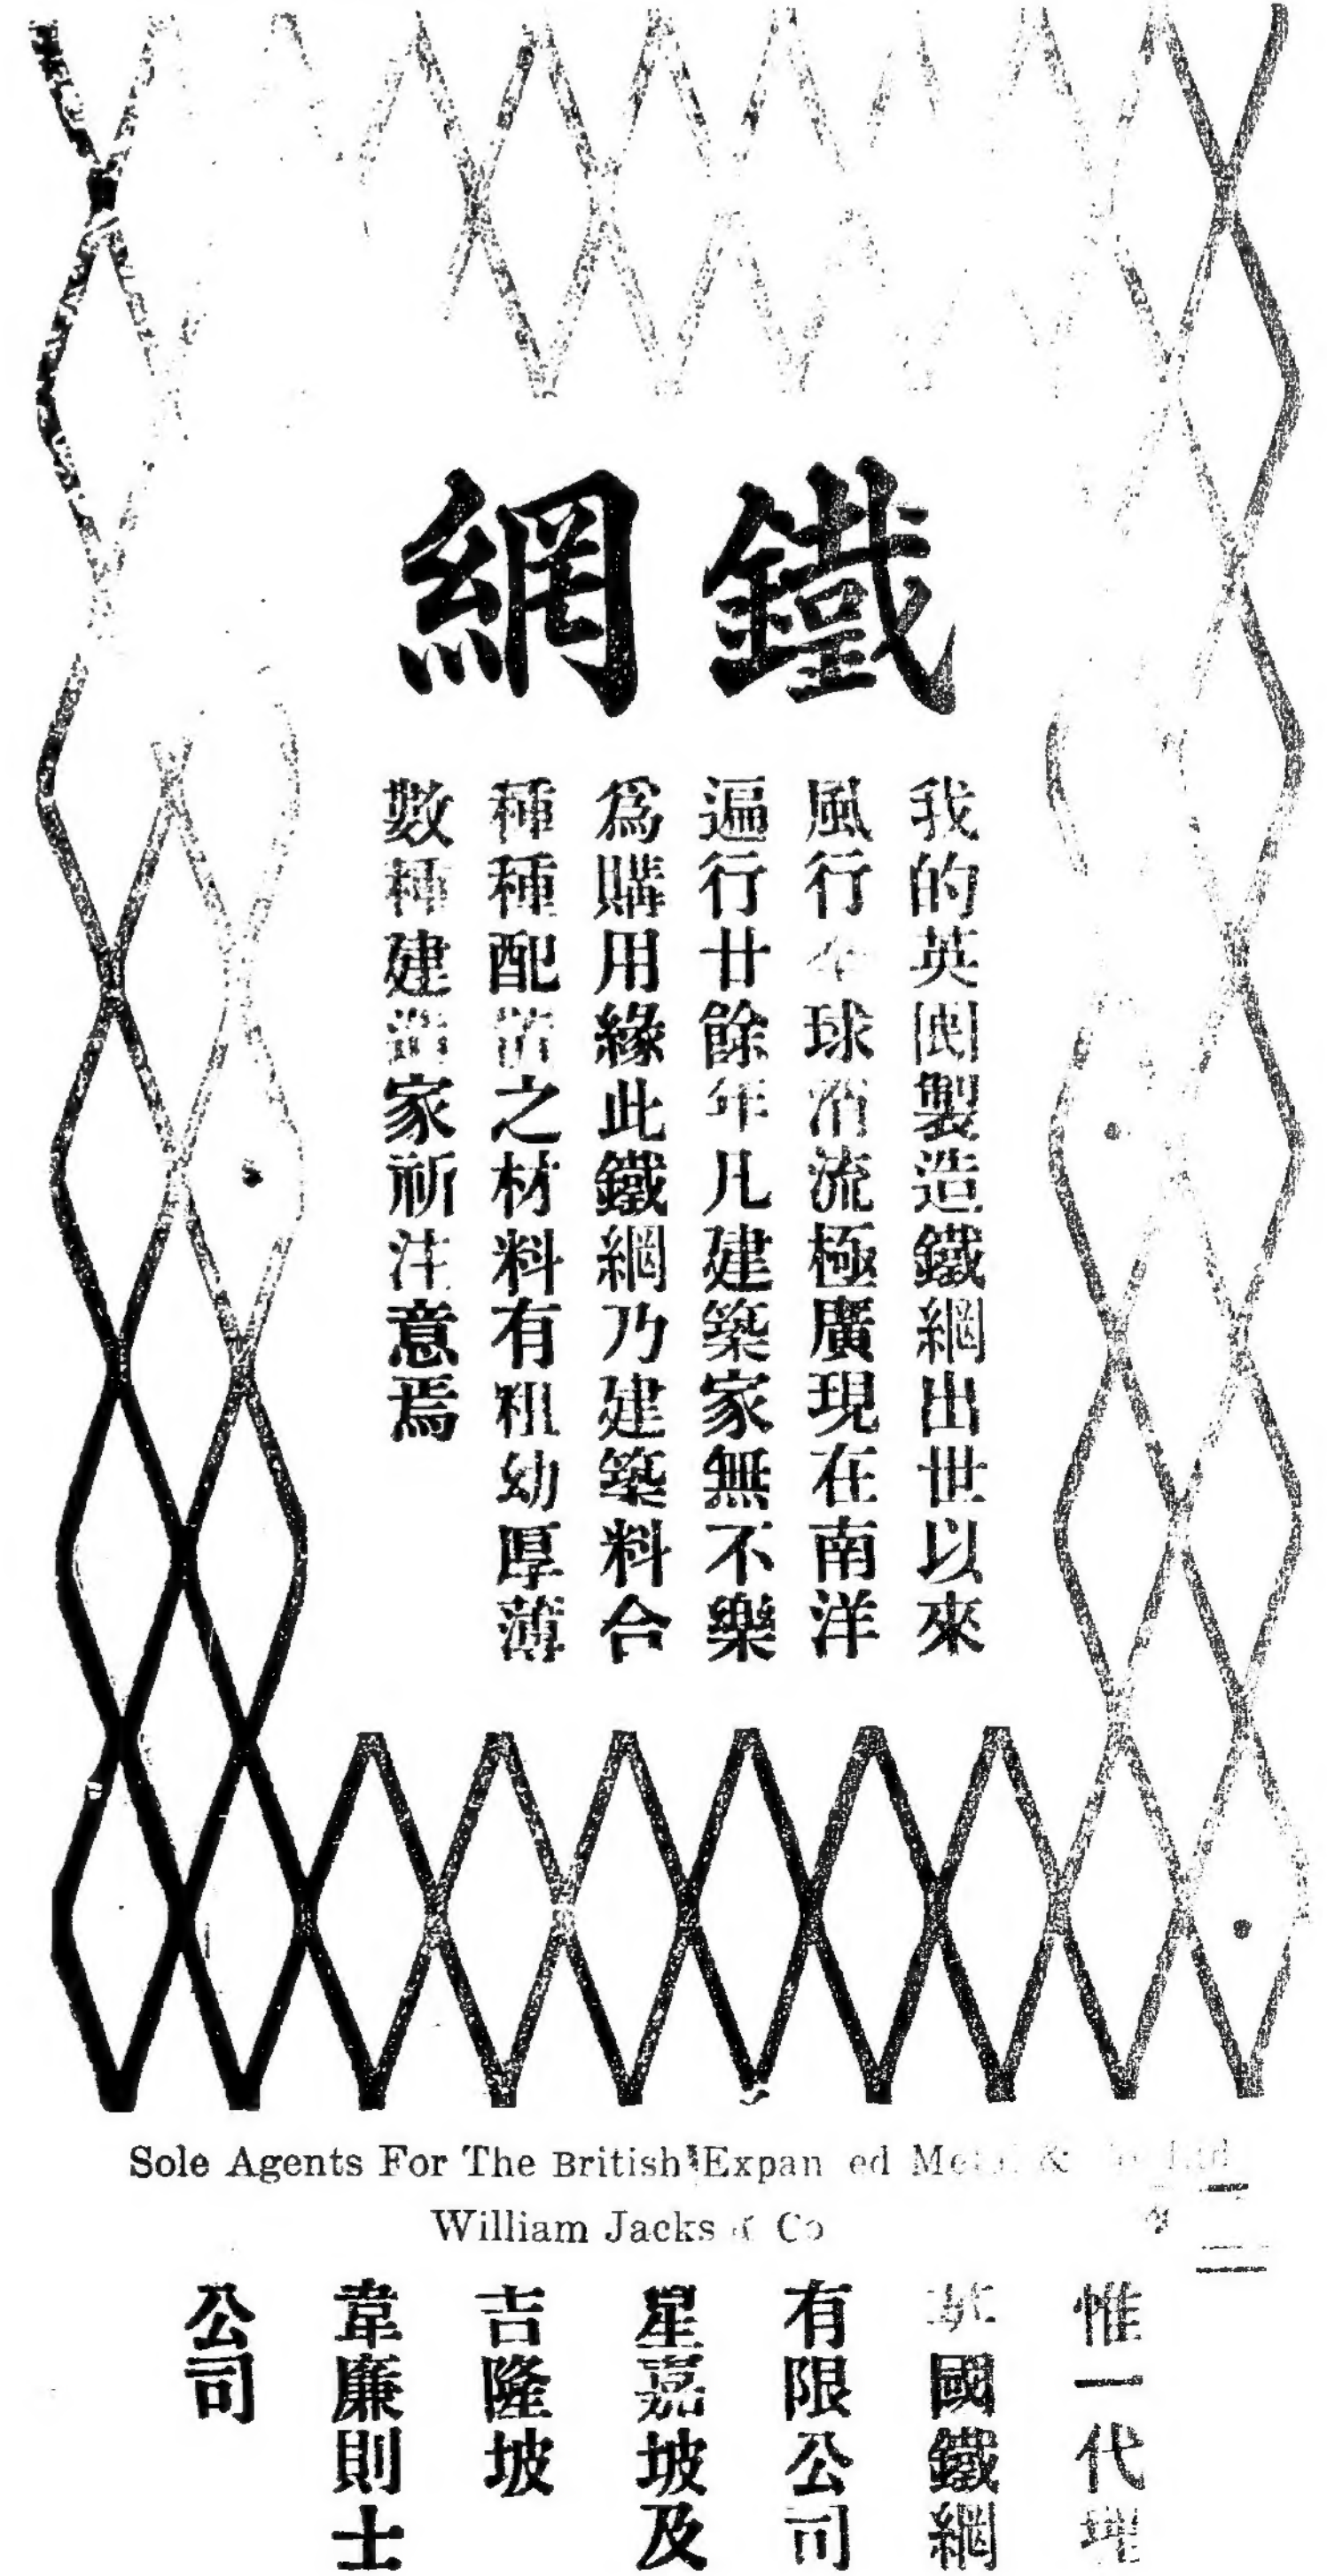 鐵網
我的英國製造鐵網出世以來
風行全球消流極廣現在南洋
遍行廿餘年凡建築家無不樂
為購用緣此鐵網乃建築料合
種種配搭之材料有粗幼厚薄
數種建造家祈注意焉
Sole Agents For The British Expanded Metal & Ltd
William Jacks & Co
惟一代理
英國鐵網
有限公司
星嘉坡及
吉隆坡
韋廉則士
公司